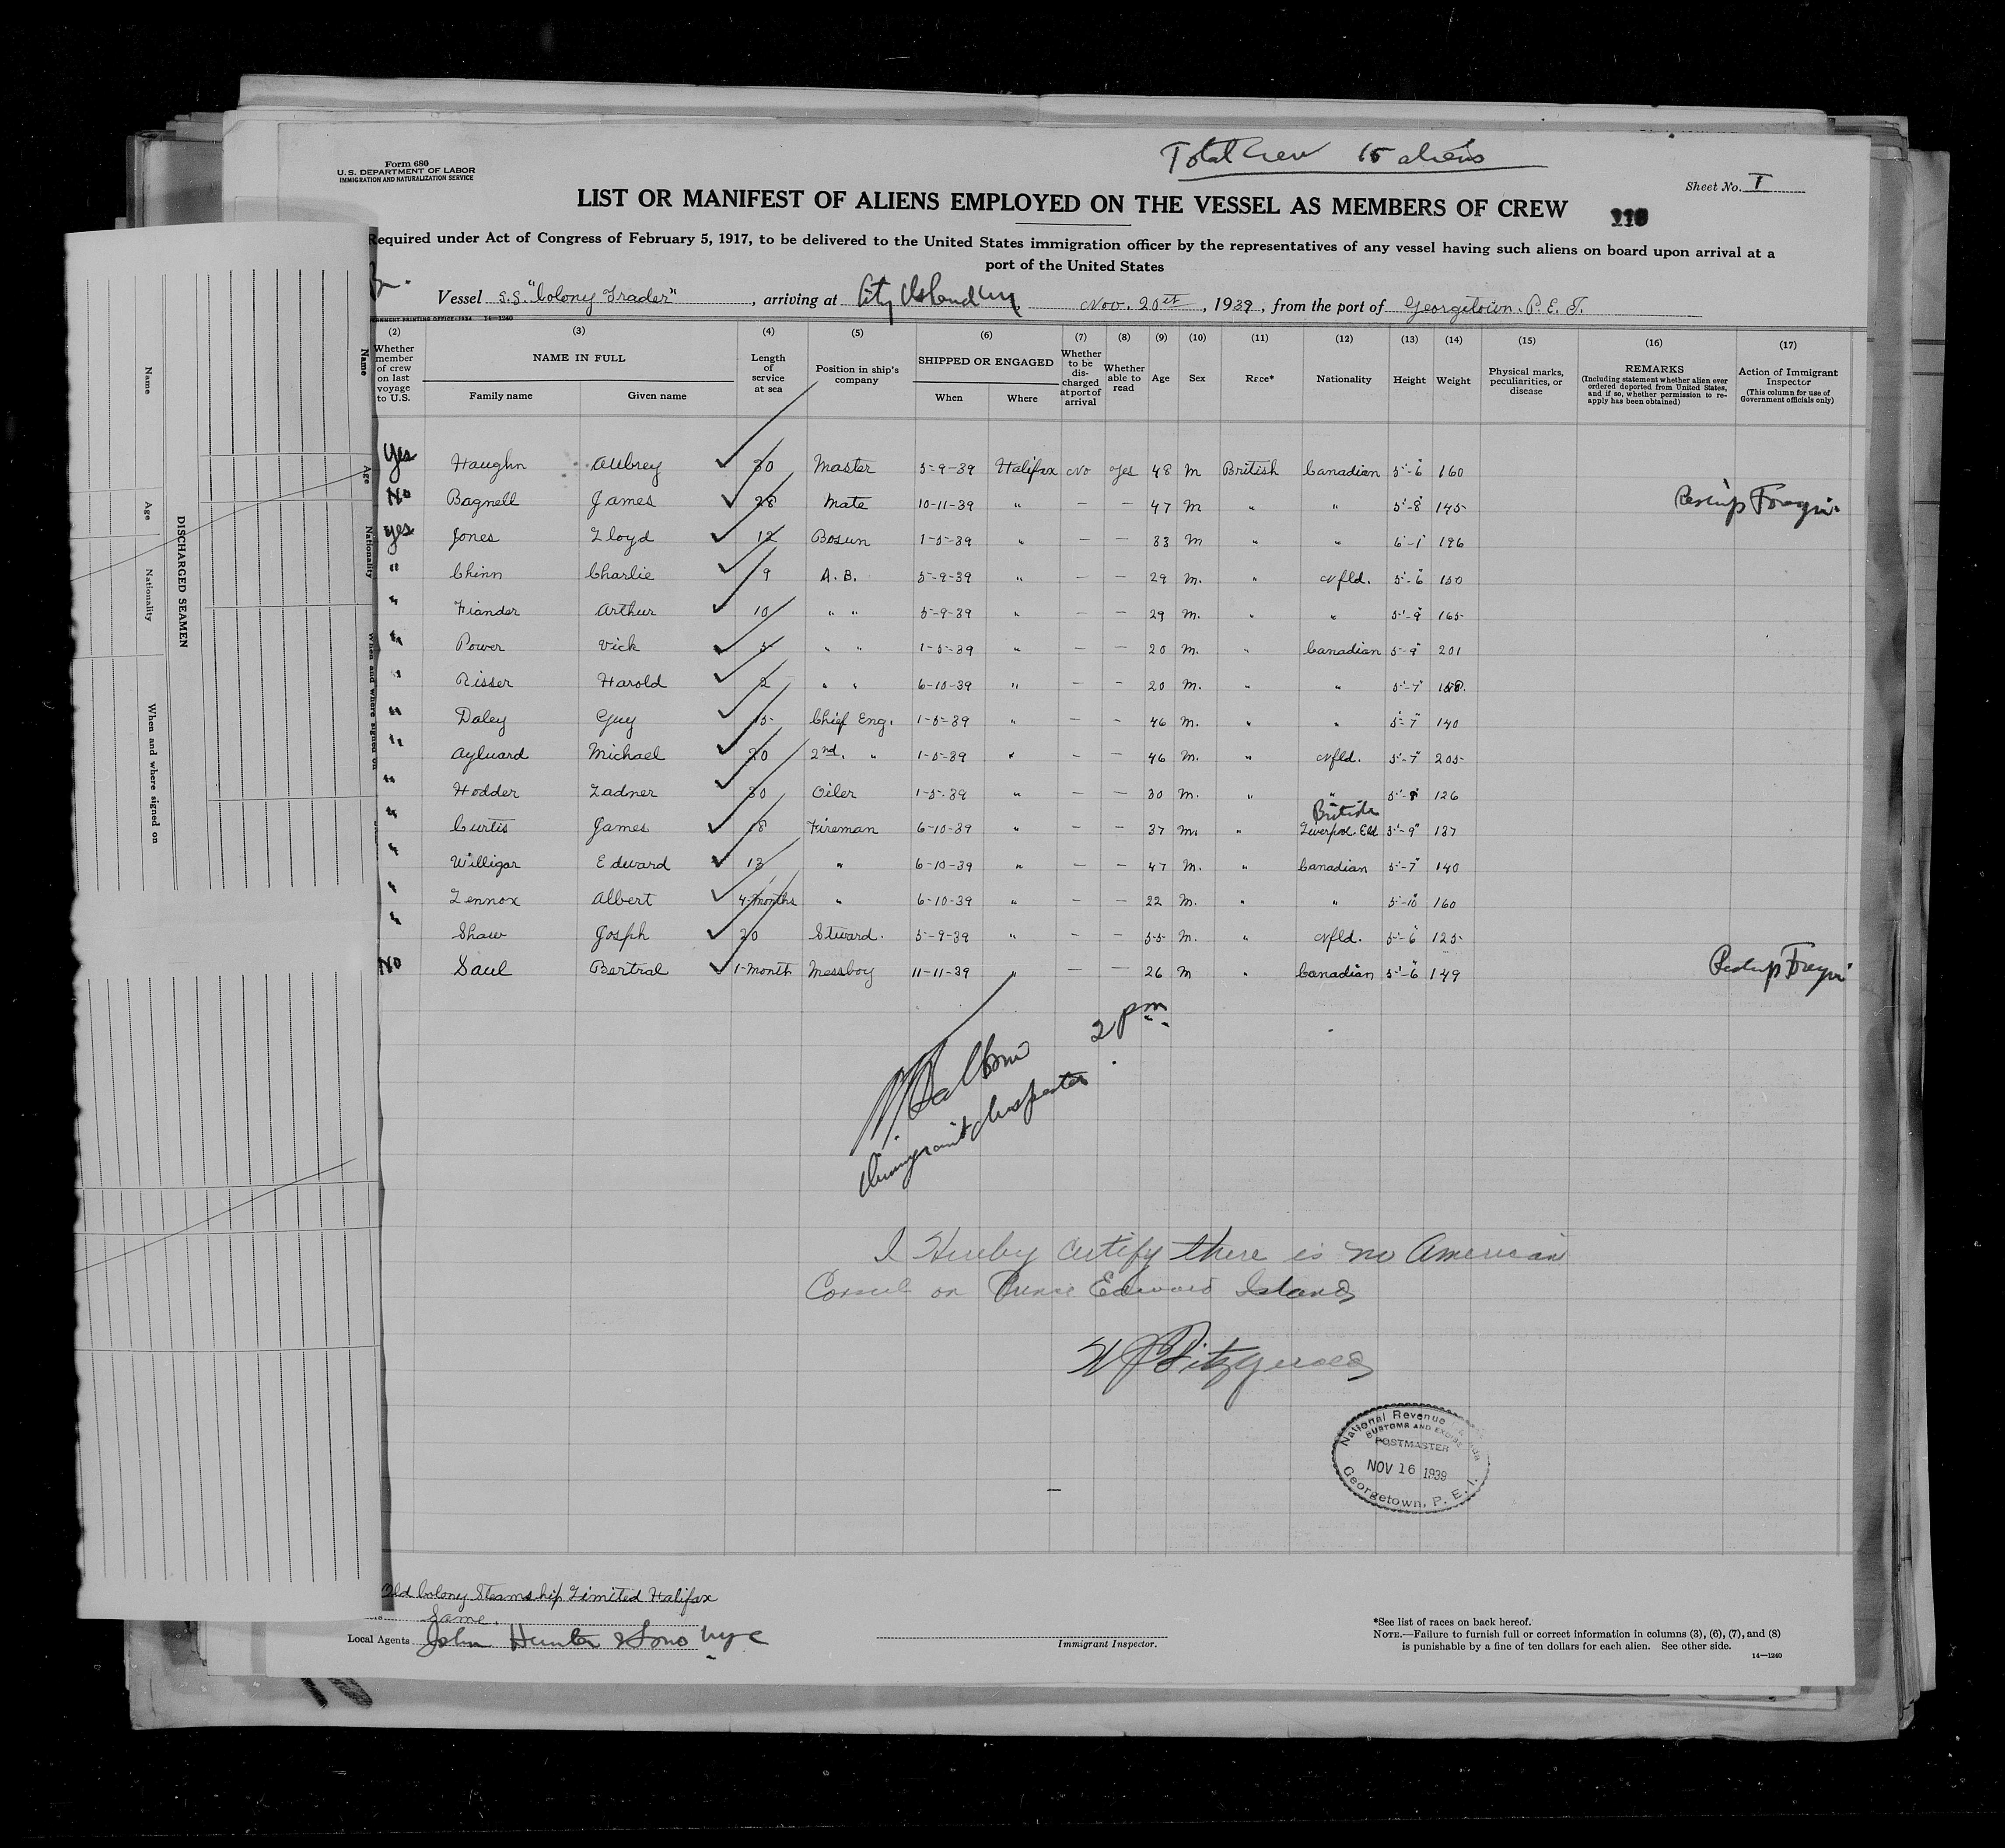 Total Crew 15 aliens
Form 680
U.S. DEPARTMENT OF LABOR
IMMIGRATION AND NATURALIZATION SERVICE
Sheet No. I
LIST OR MANIFEST OF ALIENS EMPLOYED ON THE VESSEL AS MEMBERS OF CREW
110
Required under Act of Congress of February 5, 1917, to be delivered to the United States immigration officer by the representatives of any vessel having such aliens on board upon arrival at a
port of the United States
Br.
Vessel S.S. "Colony Trader", arriving at City Island NY Nov. 20th, 1939, from the port of Georgetown. P. E. I.
14—1240
(2) (3) (4) (5) (6) (7) (8) (9) (10) (11) (12) (13) (14) (15) (16) (17)
Whether member of crew on last voyage to U.S.
NAME IN FULL
Family name Given name
Length of service at sea
Position in ship's company
SHIPPED OR ENGAGED
When Where
Whether to be discharged at port of arrival
Whether able to read
Age Sex Race* Nationality Height Weight
Physical marks, peculiarities, or disease
REMARKS
(Including statement whether alien ever ordered deported from United States, and if so, whether permission to reapply has been obtained)
Action of Immigrant Inspector
(This column for use of Government officials only)
Yes Haughn Aubrey 30 Master 5-9-39 Halifax No Yes 48 M British Canadian 5'-6" 160
No Bagnell James 28 Mate 10-11-39 " — — 47 M " " 5'-8" 145 Reship Foreign
Yes Jones Lloyd 12 Bosun 1-5-39 " — — 33 M " " 6'-1" 196
" Chinn Charlie 9 A. B. 5-9-39 " — — 29 M. " Nfld. 5'-6" 150
" Fiander Arthur 10 " " 5-9-39 " — — 29 M. " " 5'-9" 165
" Power Vick 5 " " 1-5-39 " — — 20 M. " Canadian 5-9" 201
" Risser Harold 2 " " 6-10-39 " — — 20 M. " " 5'-7" 158.
" Daley Guy 15 Chief Eng. 1-5-39 " — - 46 M. " " 5'-7" 140
" Aylward Michael 20 2nd. " 1-5-39 " — — 46 M. " Nfld. 5'-7" 205
" Hodder Ladner 30 Oiler 1-5-39 " — — 30 M. " " 5'-8" 126
British
" Curtis James 18 Fireman 6-10-39 " — — 37 M. " Liverpool Eld 5'-9" 137
" Willigar Edward 13 " 6-10-39 " — — 47 M. " Canadian 5'-7" 140
" Lennox Albert 4-months " 6-10-39 " — — 22 M. " " 5'-10" 160
" Shaw Josph 20 Stward. 5-9-39 " — — 55 M. " Nfld. 5'-6" 125
No Saul Bertral 1-month Messboy 11-11-39 " — — 26 M " Canadian 5'-6" 149 Reship Foreign
2 pm
Immigrant Inspector
I Hereby certify there is no American
Consul on Prince Edward Island
W J Fitzgerald
National Revenue
CUSTOMS AND EXCISE
POSTMASTER
NOV 16 1939
Georgetown, P. E. I.
Old Colony Steamship Limited Halifax
Same.
Local Agents John Hunter & Sons NYC
Immigrant Inspector.
*See list of races on back hereof.
NOTE.—Failure to furnish full or correct information in columns (3), (6), (7), and (8)
is punishable by a fine of ten dollars for each alien. See other side.
14—1240
DISCHARGED SEAMEN
Name Age Nationality When and where signed on
Name Age Nationality When and where signed on